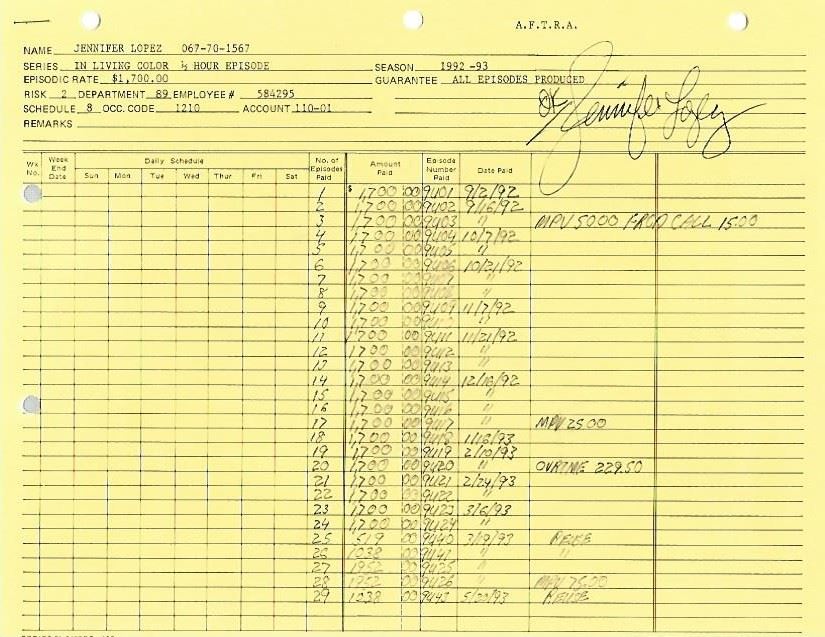 A.F.T.R.A.
NAME JENNIFER LOPEZ 067-70-1567
SERIES IN LIVING COLOR ½ HOUR EPISODE SEASON 1992-93
EPISODIC RATE $1,700.00 GUARANTEE ALL EPISODES PRODUCED
RISK 2 DEPARTMENT 89 EMPLOYEE # 584295
SCHEDULE 8 OCC. CODE 1210 ACCOUNT 110-01
REMARKS
OK Jennifer Lopez
Wk No. Week End Date Daily Schedule Sun Mon Tue Wed Thur Fri Sat No. of Episodes Paid Amount Paid Episode Number Paid Date Paid
1 $ 1,700 00 9401 9/2/92
2 1,700 00 9402 9/16/92
3 1,700 00 9403 " MPV 5000 PROD CALL 15.00
4 1,700 00 9404 10/7/92
5 1,700 00 9405 "
6 1,700 00 9406 10/21/92
7 1,700 00 9407 "
8 1,700 00 9408 "
9 1,700 00 9409 11/7/92
10 1,700 00 "
11 1,700 00 9411 11/21/92
12 1,700 00 9412 "
13 1,700 00 9413 "
14 1,700 00 9414 12/16/92
15 1,700 00 9415 "
16 1,700 00 9416 "
17 1,700 00 9417 " MPV 25.00
18 1,700 00 9418 1/16/93
19 1,700 00 9419 2/10/93
20 1,700 00 9420 " OVRTIME 229.50
21 1,700 00 9421 2/24/93
22 1,700 00 9422 "
23 1,700 00 9423 3/6/93
24 1,700 00 9424 "
25 519 00 9440 3/19/93 REUSE
26 1038 00 9441 " "
27 1952 00 9425 "
28 1952 00 9426 " MPV 75.00
29 1038 00 9443 5/20/93 REUSE